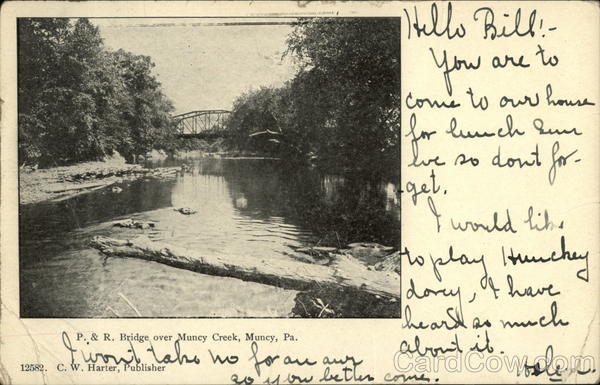 Hello Bill!-
You are to
come to our house
for lunch Sun
eve so don't for-
get.
I would like
to play Hunckey
dorey, I have
heard so much
about it.
P. & R. Bridge over Muncy Creek, Muncy, Pa.
12582. C. W. Harter, Publisher
I won't take no for an aur
so you better come.
CardCow.com